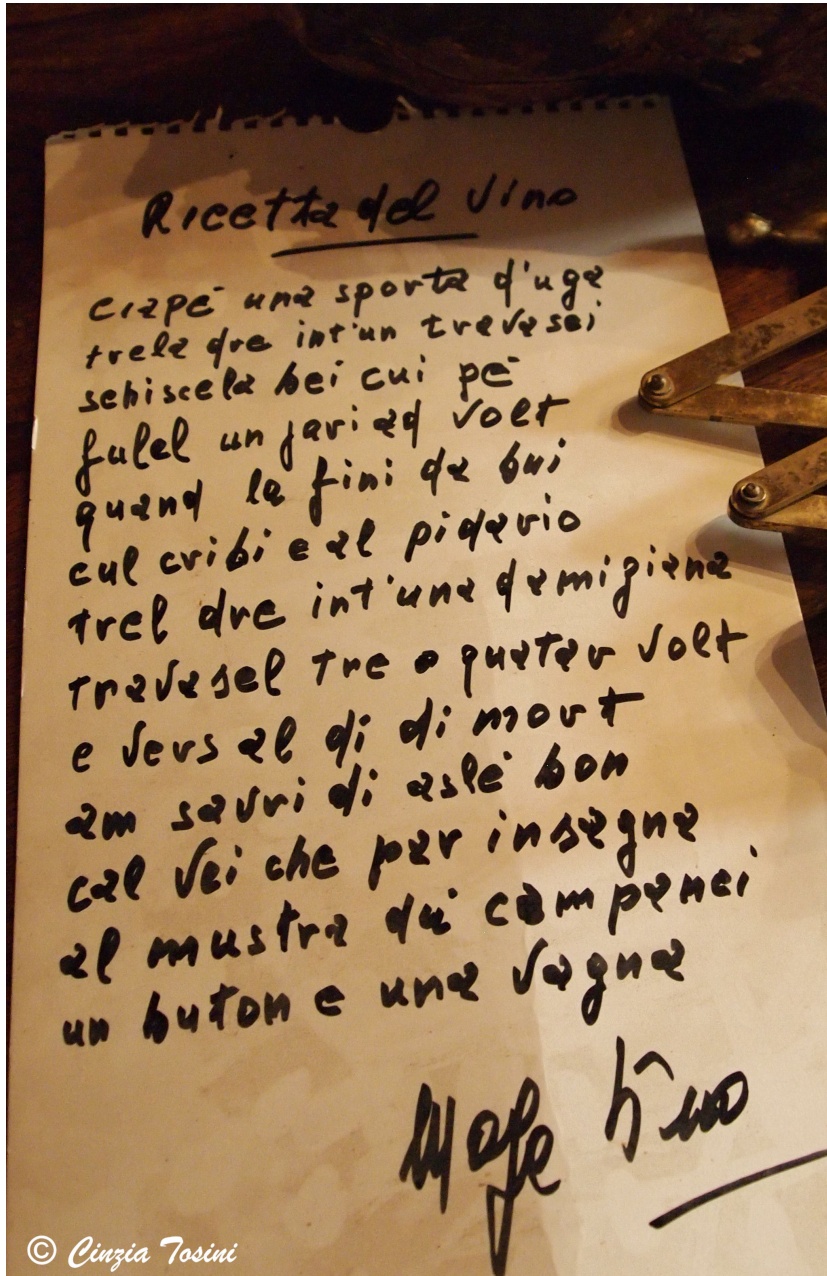 Ricetta del vino
ciapè una sporta d'uga
trela dre int'un travasei
schiscela bei cui pè
fulel un pari ad volt
quand la fini da bui
cul cribi e al pidario
trel dre int'una damigiana
travasel tre o quatar volt
e vers al di di mort
am savri di aslè bon
cal vei che par insagna
al mustra dü campanei
un buton e una vagna
© Cinzia Tosini